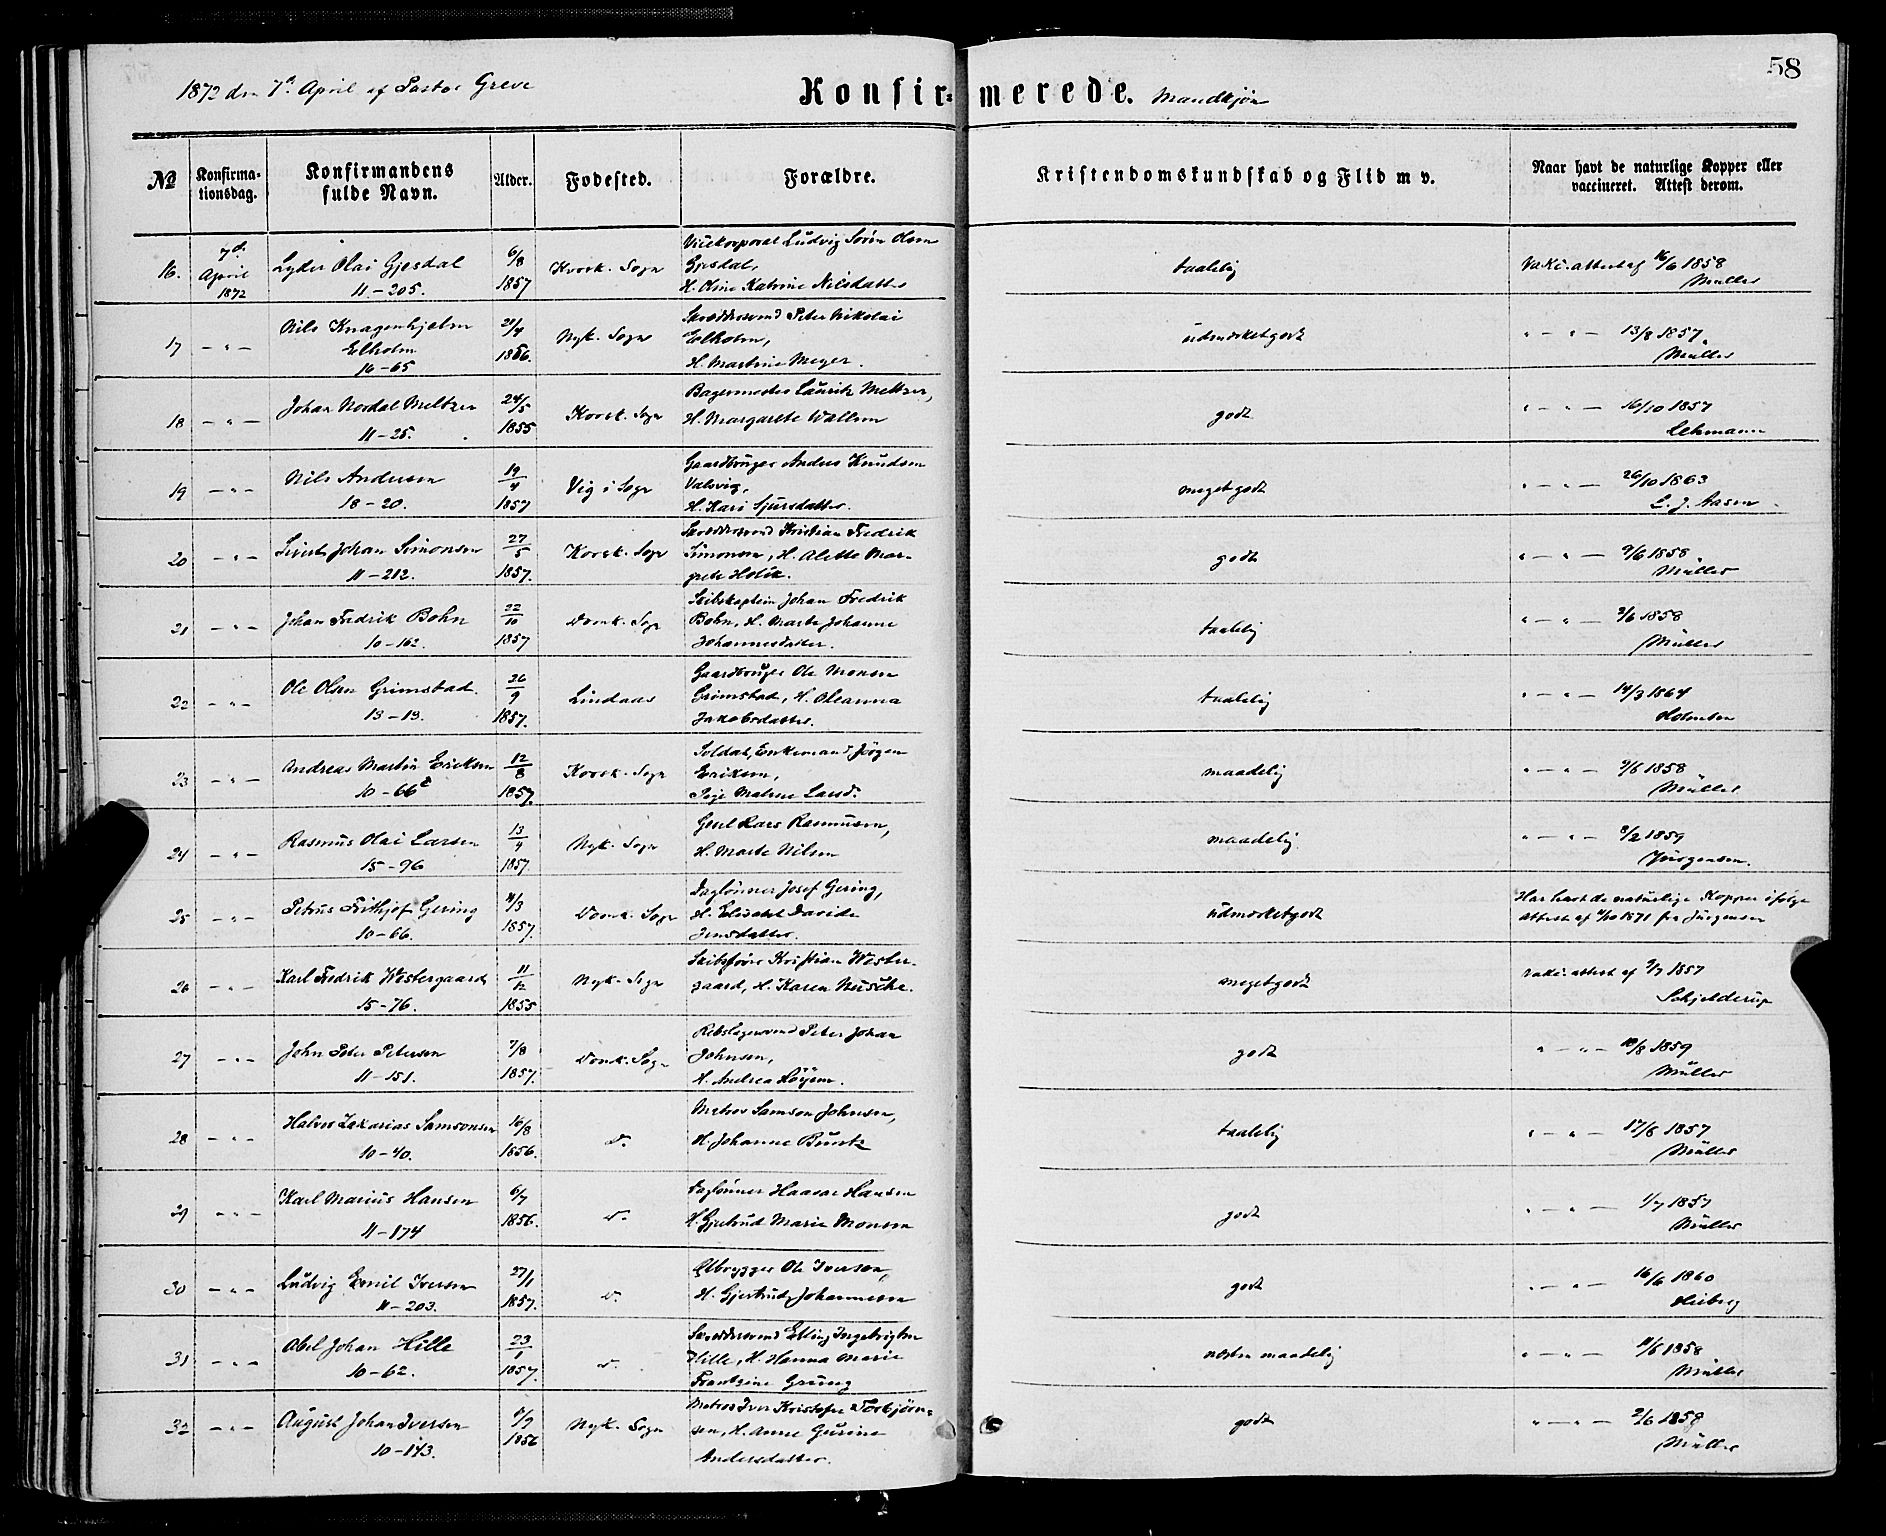 58
1872 den 7d. April af Pastor Greve
Konfirmerede. Mandkjøn
№ Konfirmationsdag. Konfirmandens fulde Navn. Alder. Fødested. Forældre. Kristendomskundskab og Flid m v. Naar havt de naturlige Kopper eller vaccineret. Attest derom.
16. 7d. April 1872 Lyder Olai Gjesdal 11-205. 6/8 1857 Korsk. Sogn Vicekorporal Ludvig Sørin Olsen Gjesdal, H. Oline Katrine Nilsdatter taalelig Vaks. attest af 16/6 1858 Müller
17 — " — Nils Knagenhjelm Elholm 16-65 21/4 1856. Nyk. Sogn Skræddersvend Peter Nikolai Elholm, H. Martine Meyer. udmærketgodt " — " — 13/8 1857. Müller
18 — " — Johan Nordal Meltzer 11-25. 24/5 1855 Korsk. Sogn Bagermester Lauritz Meltzer, H. Margarete Wallem godt " — " — 16/10 1857 Lehmann
19 — " — Nils Andersen 18-20. 19/4 1857 Vig i Sogn Gaardbruger Anders Knudsen H. Kari Sjursdatter. megetgodt " — " — 26/10 1863 L. J. Aasen
20 — " — Johan Simonsen 11-212. 27/5 1857. Korsk. Sogn Skræddersvend Kristian Fredrik Simonsen, H. Alette Margrete Holck. godt " — " — 9/6 1858. Müller
21 — " — Johan Fredrik Bohn 10-162. 22/10 1857 Domk. Sogn Skibskaptein Johan Fredrik Bohn, H. Marte Johanne Johannesdatter. taalelig " — " — 3/6 1858 Müller
22 — " — Ole Olsen Grimstad. 13-13. 26/9 1857. Lindaas Gaardbruger Ole Monsen Grimstad, H. Oleanna Jakobsdatter. taalelig " — " — 14/3 1864 Holmsen
23 — " — Andreas Martin Eriksen 10-66 c 12/8 1857. Korsk. Sogn Soldat, Enkemand, Jørgen Eriksen, Pige Malene Larsd. maadelig " — " — 9/6 1858 Müller
24 — " — Rasmus Olai Larsen 15-96 13/4 1857. Nyk. Sogn Lars Rasmusen, H. Marte Nilsen maadelig " — " — 8/2 1859 Jürgensen.
25 — " — Petrus Frithjof Gering 10-66. 4/3 1857. Domk. Sogn Daglønner Josef Gering, H. Elisabet Davide Jensdatter. udmærketgodt Har havt de naturlige Kopper ifølge attest af 1871 fra Jürgensen
26 — " — Karl Fredrik Westergaard 15-76. 11/12 1855 Nyk. Sogn Skibsfører Kristian Westergaard, H. Karen Nusche. megetgodt vaks. attest af 9/7 1857 Schjelderup
27 — " — John Peter Petersen 11-151. 7/8 1857. Domk. Sogn Rebslagersvend Peter Johan Johnsen, H. Andrea godt " — " — 18/8 1859 Müller
28 — " — Halvor Zakarias Samsonsen 10-40. 16/8 1856. do. Matros Samson Johnsen, H. Johanne Buntz taalelig " — " — 17/8 1857 Müller
29 — " — Karl Marius Hansen 11-174 6/7 1856. do. Daglønner Haavar Hansen H. Gjertrud Marie Monsen godt " — " — 1/7 1857 Müller
30 — " — Ludvig Emil Iversen 11-203. 27/1 1857. do. Ølbrygger Ole Iversen, H. Gjertrud Johannesen godt " — " — 16/6 1860 Heiberg
31 — " — Abel Johan Hille 10-62. 23/1 1857. do. Skræddersvend Elling Ingebrigtsen Hille, H. Hanna Marie Frantzine Grung næsten maadelig " — " — 11/6 1858 Müller
32 — " — August Johan Iversen 10-143. 1856 Nyk. Sogn Matros Iver Kristofer Torbjørnsen, H. Anne Gurine Andersdatter. godt " — " — 2/6 1858 Müller